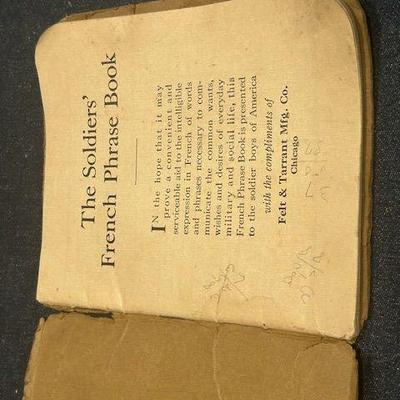 The Soldiers'
French Phrase Book
IN the hope that it may
prove a convenient and
serviceable aid to the intelligible
expression in French of words
and phrases necessary to com-
municate the common wants,
wishes and desires of everyday
military and social life, this
French Phrase Book is presented
to the soldier boys of America
with the compliments of
Felt & Tarrant Mfg. Co.
Chicago